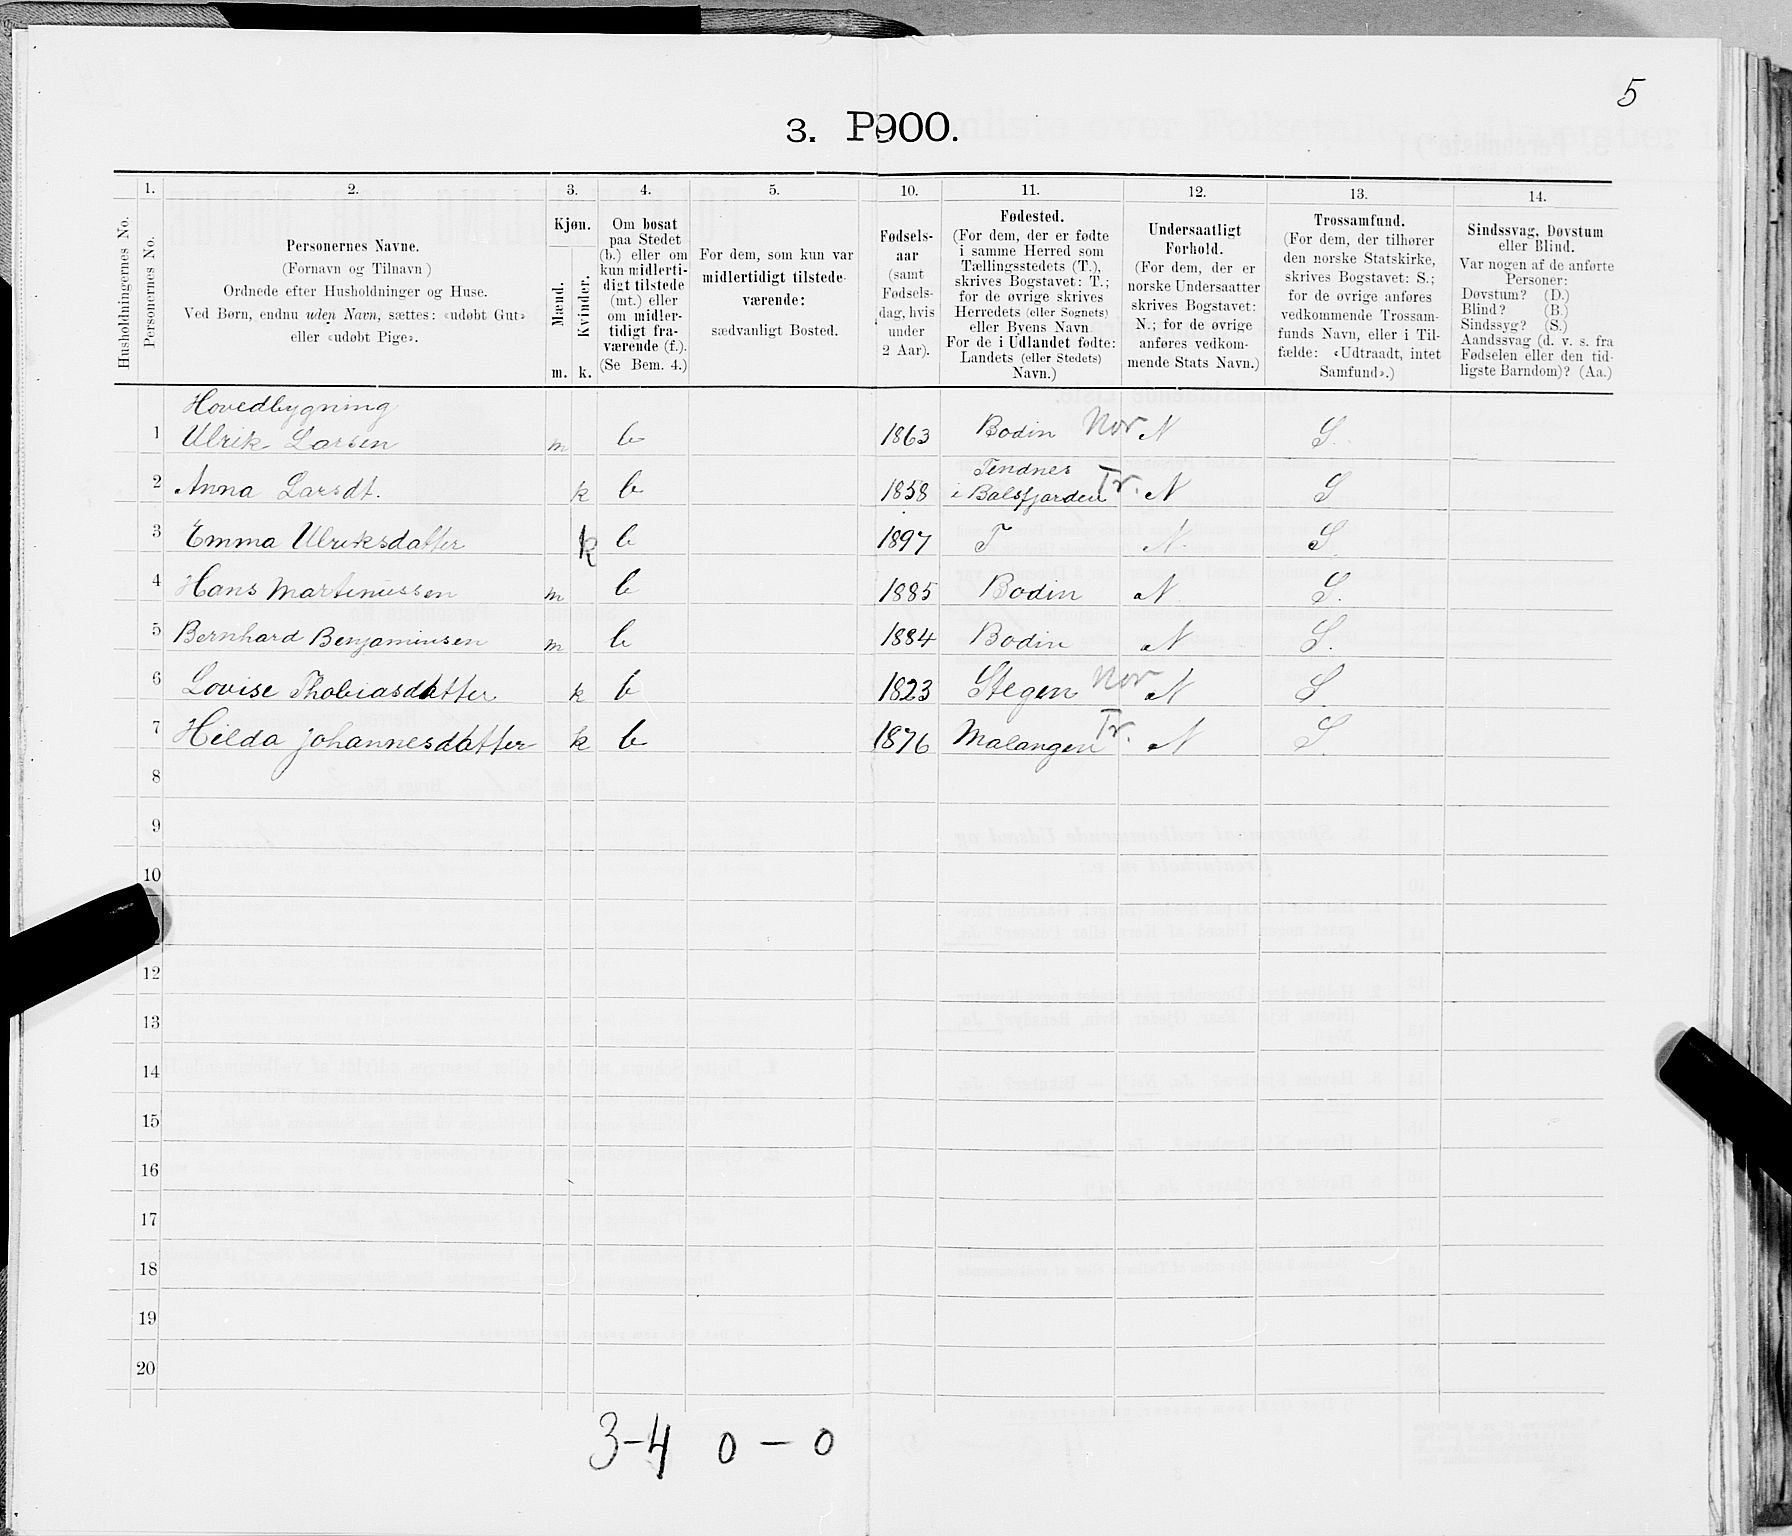 5
3. P900.
1. 2. 3. 4. 5. 10. 11. 12. 13. 14.
Husholdningernes No.
Personernes No.
Personernes Navne.
(Fornavn og Tilnavn)
Ordnede efter Husholdninger og Huse.
Ved Børn, endnu uden Navn, sættes: «udøbt Gut»
eller «udøbt Pige».
Kjøn.
Mænd.
Kvinder.
m. k.
Om bosat
paa Stedet
(b.) eller om
kun midlerti-
digt tilstede
(mt.) eller
om midler-
tidigt fra-
værende (f.).
(Se Bem. 4.)
For dem, som kun var
midlertidigt tilstede-
værende:
sædvanligt Bosted.
Fødsels-
aar
(samt
Fødsels-
dag, hvis
under
2 Aar).
Fødested.
(For dem, der er fødte
i samme Herred som
Tællingsstedets (T.),
skrives Bogstavet: T.;
for de øvrige skrives
Herredets (eller Sognets)
eller Byens Navn
For de i Udlandet fødte:
Landets (eller Stedets)
Navn.)
Undersaatligt
Forhold.
(For dem, der er
norske Undersaatter
skrives Bogstavet:
N.; for de øvrige
anføres vedkom-
mende Stats Navn.)
Trossamfund.
(For dem, der tilhører
den norske Statskirke,
skrives Bogstavet: S.;
for de øvrige anføres
vedkommende Trossam-
funds Navn, eller i Til-
fælde: «Udtraadt, intet
Samfund».)
Sindssvag, Døvstum
eller Blind.
Var nogen af de anførte
Personer:
Døvstum? (D.)
Blind? (B.)
Sindssyg? (S.)
Aandssvag (d. v. s. fra
Fødselen eller den tid-
ligste Barndom)? (Aa.)
Hovedbygning
1 Ulrik Larsen m b 1863 Bodin Nor N S.
Tendnes
2 Anna Larsdt. k b 1858 i Balsfjorden Tr. N S
3 Emma Ulriksdatter k b 1897 T N. S.
4 Hans Martinussen m b 1885 Bodin N. S.
5 Bernhard Benjaminsen m b 1884 Bodin N S.
6 Lovise Thobiasdatter k b 1823 Stegen Nor N S.
7 Hilda Johannesdatter k b 1876 Malangen Tr. N S.
8
9
10
12
13
14
15
16
17
18
19
20
3-4 0 - 0